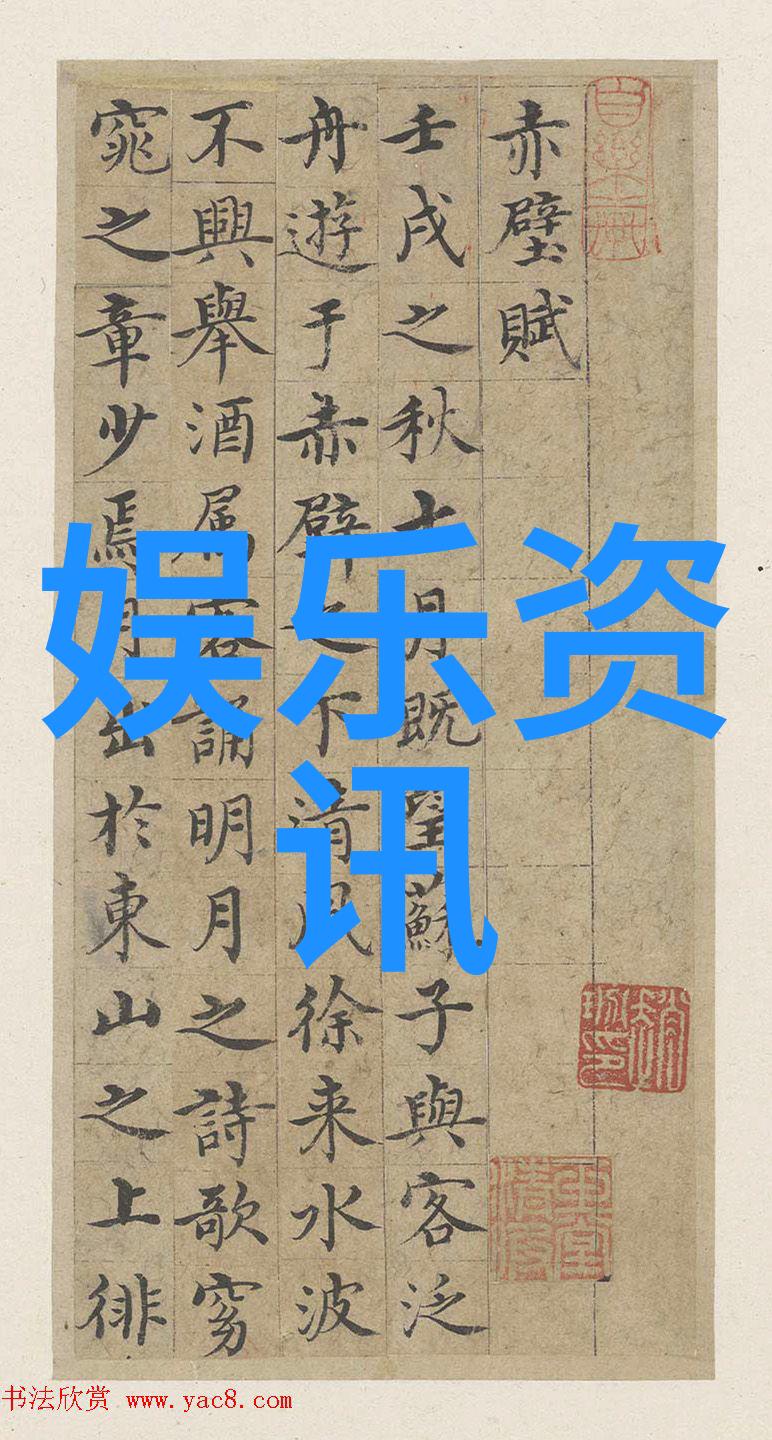 赤壁賦
壬戌之秋七月既望蘇子與客泛
舟遊于赤壁之下清風徐来水波
不興舉酒属客誦明月之詩歌窈
窕之章少焉月出於東山之上徘
娱乐资
讯
书法欣赏 www.yac8.com